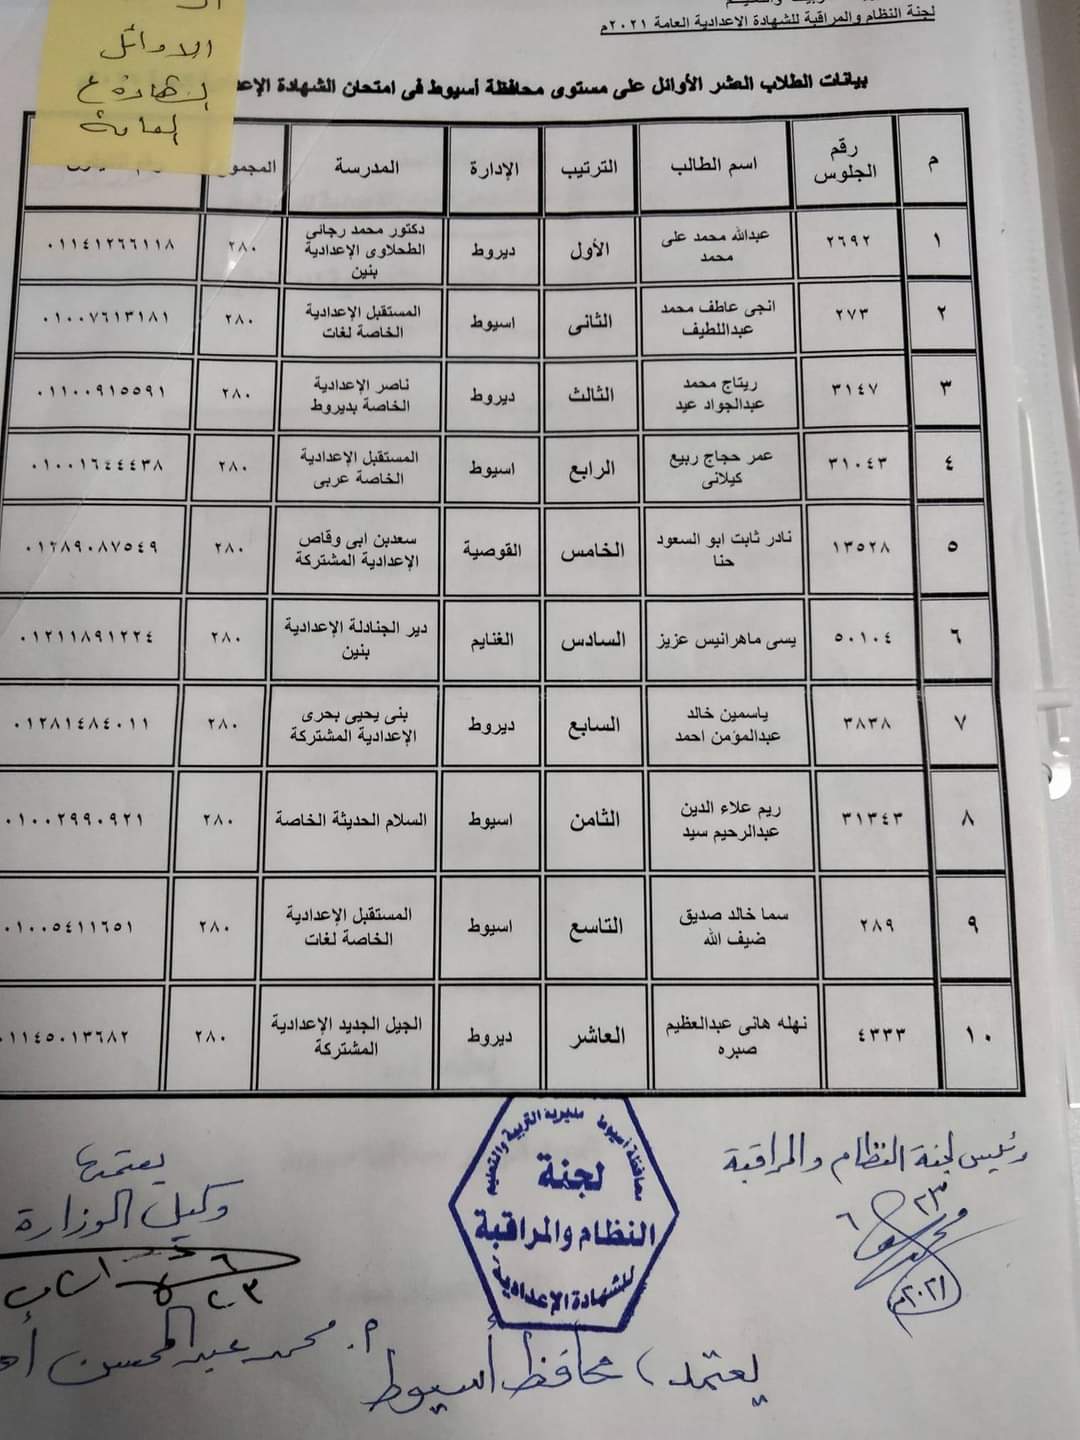 لجنة النظام والمراقبة للشهادة الإعدادية العامة ٢٠٢١م
الاوائل
الشهادة ع
العامة
بيانات الطلاب العشر الأوائل على مستوى محافظة أسيوط فى امتحان الشهادة
م رقم الجلوس اسم الطالب الترتيب الإدارة المدرسة المجموع
١ ٢٦٩٢ عبدالله محمد على محمد الأول ديروط دكتور محمد رجائى الطحلاوى الإعدادية بنين ٢٨٠ ٠١١٤١٢٦٦١١٨
٢ ٢٧٣ انجى عاطف محمد عبداللطيف الثانى اسيوط المستقبل الإعدادية الخاصة لغات ٢٨٠ ٠١٠٠٧٦١٣١٨١
٣ ٣١٤٧ ريتاج محمد عبدالجواد عيد الثالث ديروط ناصر الإعدادية الخاصة بديروط ٢٨٠ ٠١١٠٠٩١٥٥٩١
٤ ٣١٠٤٣ عمر حجاج ربيع كيلانى الرابع اسيوط المستقبل الإعدادية الخاصة عربى ٢٨٠ ٠١٠٠١٦٤٤٤٣٨
٥ ١٣٥٢٨ نادر ثابت ابو السعود حنا الخامس القوصية سعدبن ابى وقاص الإعدادية المشتركة ٢٨٠ ٠١٢٨٩٠٨٧٥٤٩
٦ ٥٠١٠٤ يسى ماهرانيس عزيز السادس الغنايم دير الجنادلة الإعدادية بنين ٢٨٠ ٠١٢١١٨٩١٢٢٤
٧ ٣٨٣٨ ياسمين خالد عبدالمؤمن احمد السابع ديروط بنى يحيى بحرى الإعدادية المشتركة ٢٨٠ ٠١٢٨١٤٨٤٠١١
٨ ٣١٣٤٣ ريم علاء الدين عبدالرحيم سيد الثامن اسيوط السلام الحديثة الخاصة ٢٨٠ ٠١٠٠٢٩٩٠٩٢١
٩ ٢٨٩ سما خالد صديق ضيف الله التاسع اسيوط المستقبل الإعدادية الخاصة لغات ٢٨٠ ٠١٠٠٥٤١١٦٥١
١٠ ٤٣٣٣ نهله هانى عبدالعظيم صبره العاشر ديروط الجيل الجديد الإعدادية المشتركة ٢٨٠ ٠١١٤٥٠١٣٦٨٢
رئيس لجنة النظام والمراقبة
٢٣
٦
٢٠٢١م
محافظة أسيوط مديرية التربية والتعليم
لجنة
النظام والمراقبة
للشهادة الإعدادية
يعتمدها
وكيل الوزارة
٦
٢٣
م. محمد عبدالمحسن
يعتمد، محافظ أسيوط